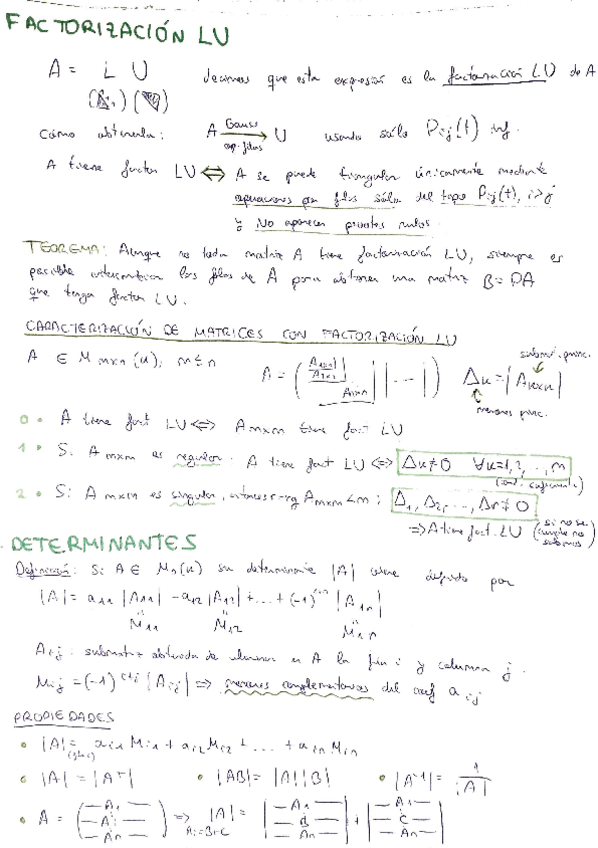 FACTORIZACIÓN LU
A = L U decimos que esta expresión es la factorización LU de A
Cómo obtenerla: A Gauss op. filas U usando sólo Pij(t) inf.
A tiene factor LU ⇔ A se puede triangular únicamente mediante
operaciones por filas sólo del tipo Pij(t), i>j
y No aparecen pivotes nulos.
TEOREMA: Aunque no toda matriz A tiene factorización LU, siempre es
posible intercambiar las filas de A para obtener una matriz B = PA
que tenga factor LU.
CARACTERIZACIÓN DE MATRICES CON FACTORIZACIÓN LU
submat. princ.
A ∈ Mmxn(K), m≤n A = ( A1x1 A2x2 Amxm | | --- | ) Δk = |Akxk|
menores princ.
0• A tiene fact LU ⇔ Amxm tiene fact LU
1• Si Amxm es regular. A tiene fact LU ⇔ Δk≠0 ∀k=1,2,...,m
(cond. suficiente)
2• Si Amxm es singular, entonces rg Amxm<m; Δ1, Δ2, ..., Δr≠0
⇒ A tiene fact. LU (si no se cumple no sabemos)
DETERMINANTES
Definición: Si A ∈ Mn(K) su determinante |A| viene definido por
|A| = a11 |A11| - a12 |A12| + ... + (-1)1+n |A1n|
M11 M12 M1n
Aij: submatriz obtenida de eliminar en A la fila i y columna j.
Mij = (-1)i+j |Aij| ⇒ menores complementarios del coef aij
PROPIEDADES
• |A| = ai1 Mi1 + ai2 Mi2 + ... + ain Min
(fila i)
• |A| = |AT| • |AB| = |A||B| • |A-1| = 1/|A|
• A = ( A1 Ai An ) ⇒ Ai=B+C |A| = | A1 B An | + | A1 C An |